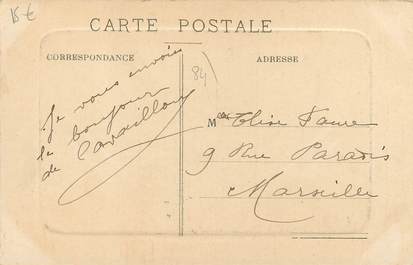 15 €
CARTE POSTALE
CORRESPONDANCE
ADRESSE
84
Je vous envoie
le bonjour
de Cavaillon
Mlle Elise Faure
9 Rue Paradis
Marseille